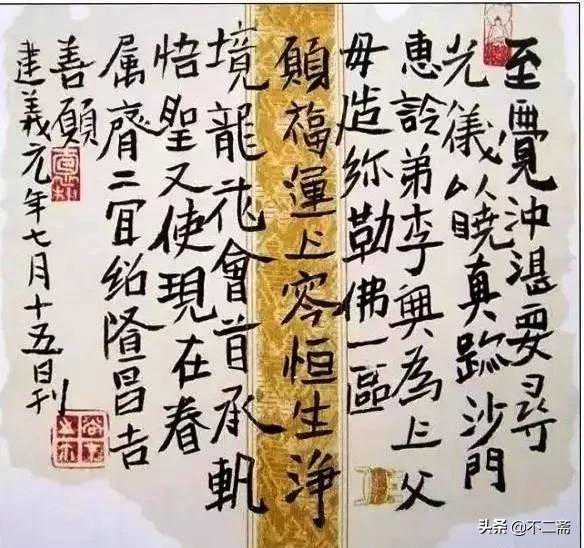 至覺沖湛要尋
光儀以曉真蹤沙門
惠詮弟李興為亡父
母造弥勒佛一區
願福運亡零恒生淨
境龍花會首承軌
悟聖又使現在眷
属齊二宜紹隆昌吉
善願
建義元年七月十五日刊
头条 @不二斋